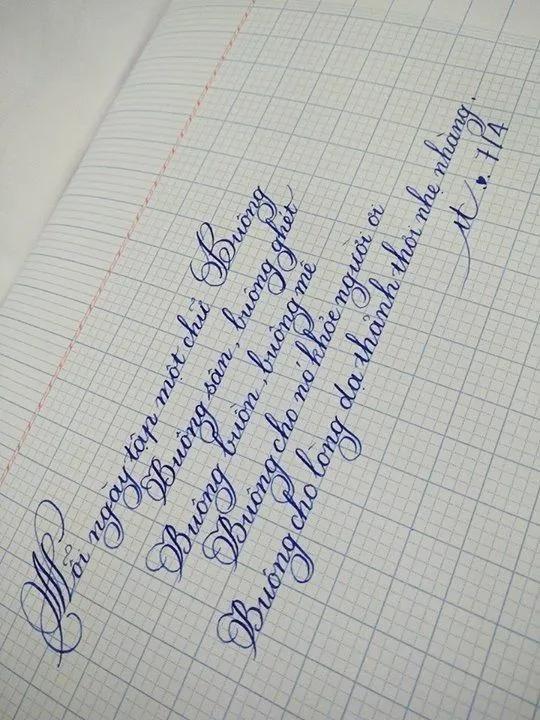 Mỗi ngày tập một chữ Buông
Buông sân, buông ghét
Buông buồn, buông mê
Buông cho nó khỏe người ơi
Buông cho lòng dạ thảnh thơi nhẹ nhàng.
7/4